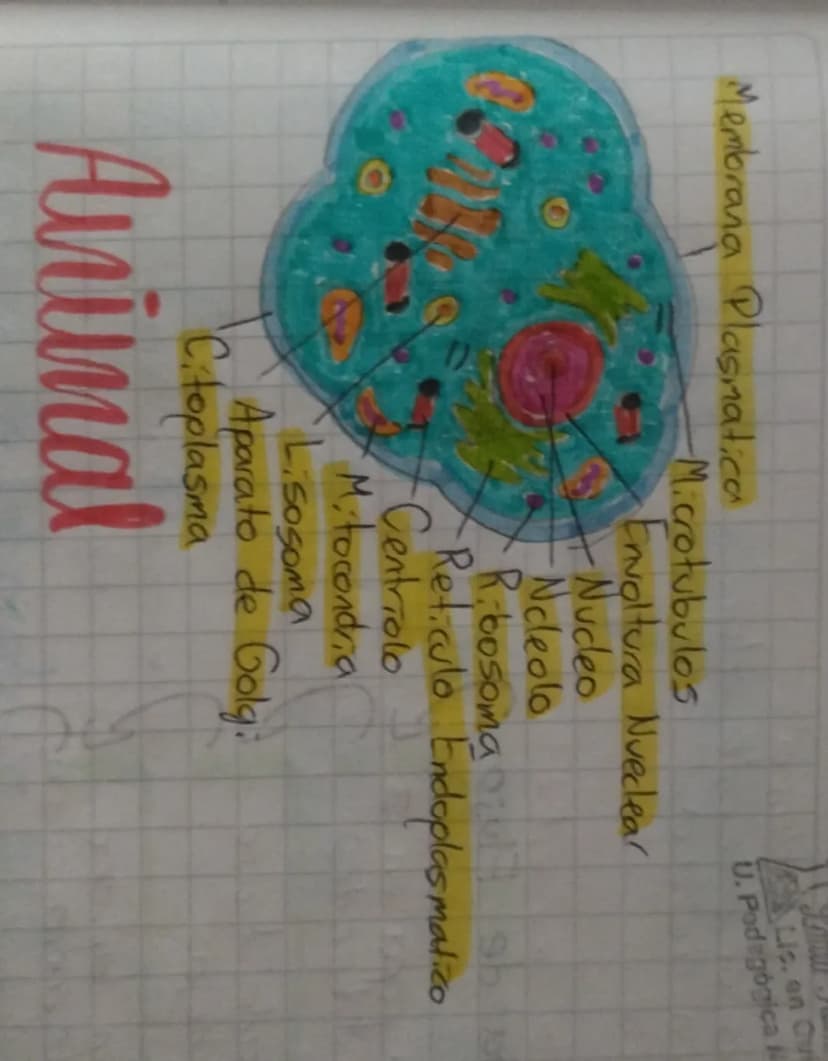 Membrana Plasmatica
Microtubulos
Envoltura Nueclear
Nucleo
Ncleolo
Ribosoma
Reticulo Endoplasmatico
Centriolo
Mitocondria
Lisosoma
Aparato de Golgi
Citoplasma
Animal
Lic. en
U. Pedagógica